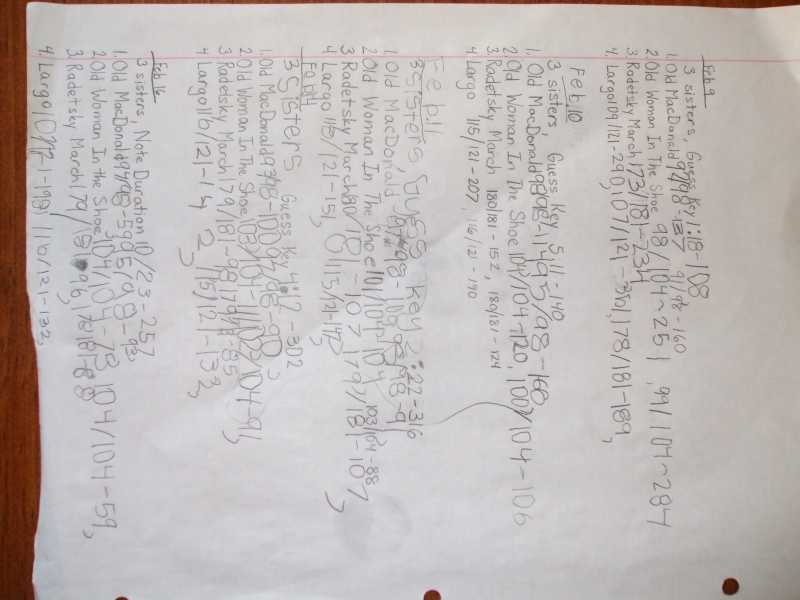 Feb 9
3 sisters, Guess Key 1:18-108
1. Old MacDonald 97/98-137 91/98-160
2 Old Woman In The Shoe 98/104-251, 99/104-284
3 Radetsky March 173/181-234
4 Largo 109/121-290, 107/121-351, 178/181-189,
Feb 10
3 sisters Guess Key 5:11-140
1. Old MacDonald 98/98-149, 95/98-160
2 Old Woman In The Shoe 104/104-120, 100/104-106
3. Radetsky March 180/181-152, 180/181-124
4 Largo 115/121-207, 116/121-190
Feb 11
3 Sisters Guess Key 2:22-316
1. Old MacDonald 98-91
2 Old Woman In The Shoe 101/104-104 103/104-88
3 Radetsky March 180/181-107 179/181-107,
4 Largo 115/121-150 115/121-147,
Feb 14
3 Sisters Guess Key 4:12-302
1. Old MacDonald 97/98-100 97/98-90,
2 Old Woman In The Shoe 103/104-111 102/104-91,
3 Radetsky March 179/181-98 179/181-85
4 Largo 110/121-142, 115/121-132,
Feb 16
3 sisters, Note Duration 10/23-257
1. Old MacDonald 97/98-59 85/98-93,
2 Old Woman In the Shoe 104/104-73 104/104-59,
3 Radetsky March 179/181-96 181-88
4. Largo 1-198 110/121-132,